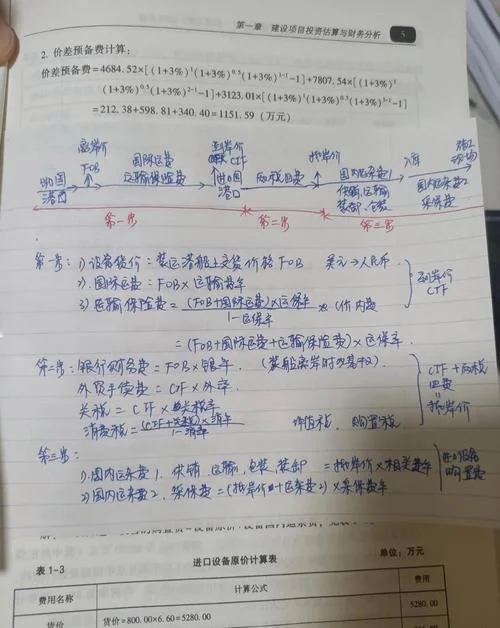 第一章 建设项目投资估算与财务分析 5
2. 价差预备费计算:
价差预备费=4684.52×[(1+3%)¹(1+3%)⁰·⁵(1+3%)¹⁻¹-1]+7807.54×[(1+3%)¹
(1+3%)⁰·⁵(1+3%)²⁻¹-1]+3123.01×[(1+3%)¹(1+3%)⁰·⁵(1+3%)³⁻¹-1]
=212.38+598.81+340.40=1151.59(万元)
离岸价 到岸价 抵岸价 入库
FOB 国际运费 CIF 国内运杂费1 现场
出口国 运输保险费 进口国 两税四费 供销、运输 国内运杂费2
港口 港口 装卸、包装 采保费
第一步 第二步 第三步
第一步: 1) 设备货价: 装运港船上交货价格 FOB 美元→人民币
2) 国际运费 = FOB×运输费率 到岸价
3) 运输保险费 = (FOB+国际运费)×运保率 价内费 CIF
1-运保率
= (FOB+国际运费+运输保险费)×运保率
第二步: 银行财务费 = FOB×银率
外贸手续费 = CIF×外率 CIF+两税
关税 = CIF×关税率 四费
消费税 = (CIF+关税)×消率 增值税 购置税 =
1-消率 抵岸价
第三步:
1) 国内运杂费1. 供销、运输、包装、装卸 = 抵岸价×相关费率 进口设备
2) 国内运杂费2, 采保费 = (抵岸价+运杂费2)×采保费率 购置费
表 1-3 进口设备原价计算表 单位: 万元
费用名称 计算公式 费用
货价 货价=800.00×6.60=5280.00 5280.00